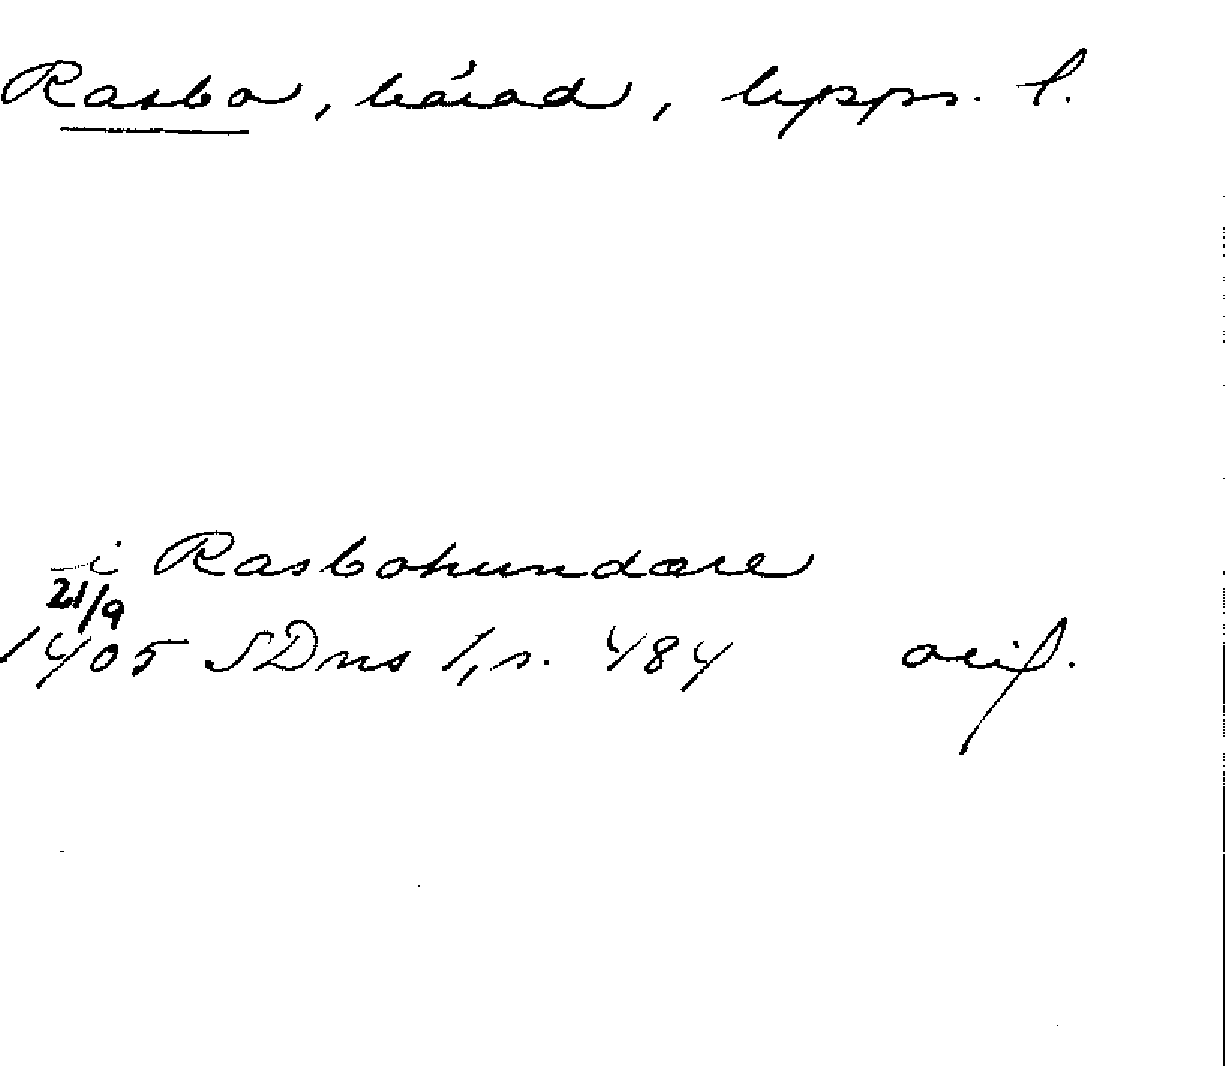 Rasbo, härad, Upps. l.
i Rasbohundære
21/9
1405 SDns 1, s. 484 orig.